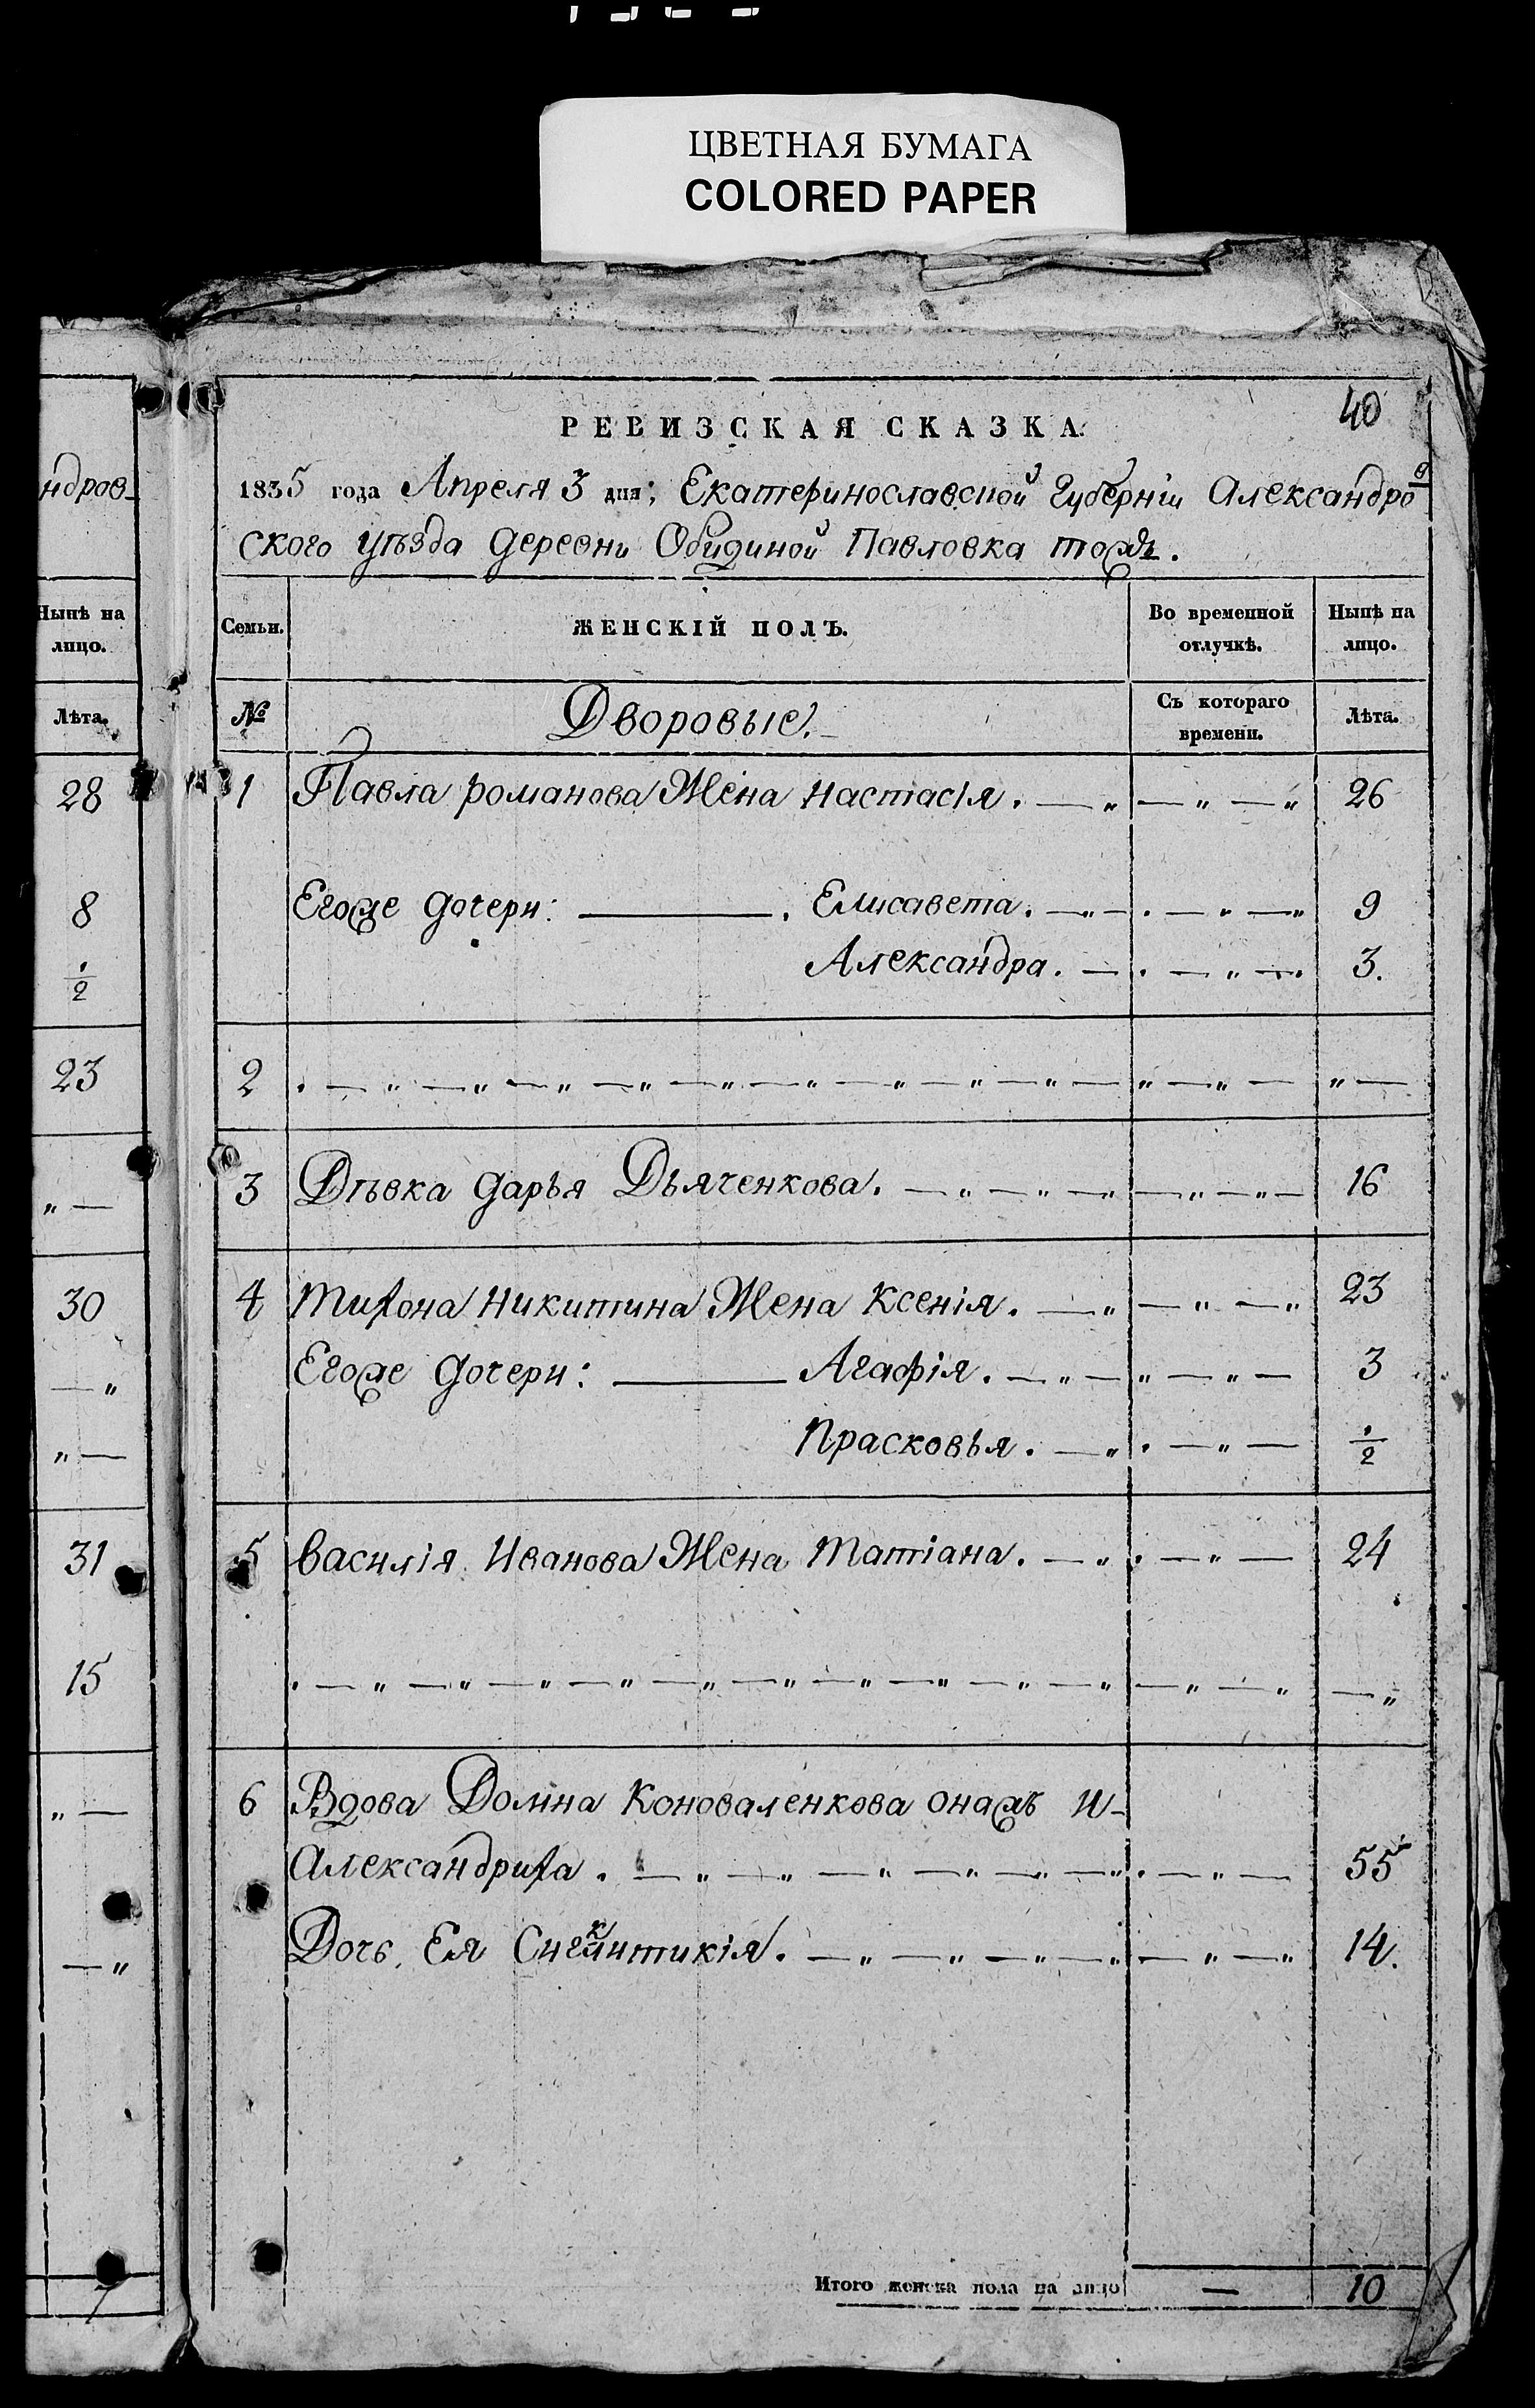 ЦВЕТНАЯ БУМАГА
COLORED PAPER
ндров-
Нынѣ на
лицо.
Лѣта.
28
8
1/2
23
„ —
30
— „
„ —
31
15
„ —
— „
7
40
РЕВИЗСКАЯ СКАЗКА.
1835 года Апреля 3 дня; Екатеринославской Губерніи Александров
ского уѣзда деревни Обидиной Павловка тожъ.
Семьи.
ЖЕНСКІЙ ПОЛЪ.
Во временной
отлучкѣ.
Нынѣ на
лицо.
№
Дворовые.
Съ котораго
времени.
Лѣта.
1 Павла романова Жена настасія. — „ — „ — „ 26
Егоже дочери: — . Елисавета. — „ — . — „ — „ 9
Александра. — . — „ — . 3.
2 . — „ — „ — „ — „ — „ — „ — „ — „ — „ — „ — „ — „ —
3 Дѣвка дарья Дьяченкова. — „ — „ — „ — „ — „ — 16
4 тихона никитина Жена ксенія. — „ — „ — „ 23
Егоже дочери: — Агафія. — „ — „ — „ — 3
Прасковья. — „ . — „ — 1/2
5 василія Иванова Жена татіана. — „ . — „ — 24
. — „ — „ — „ — „ — „ — „ — „ — „ — „ — „ — „ — „ — „
6 Вдова Домна Коноваленкова онажъ и-
Александриха. — „ — „ — „ — „ — „ — „ . — „ — 55
Дочь Ея Сигклитикія. — „ — „ — „ — „ — „ — „ 14.
Итого женска пола на лицо — 10